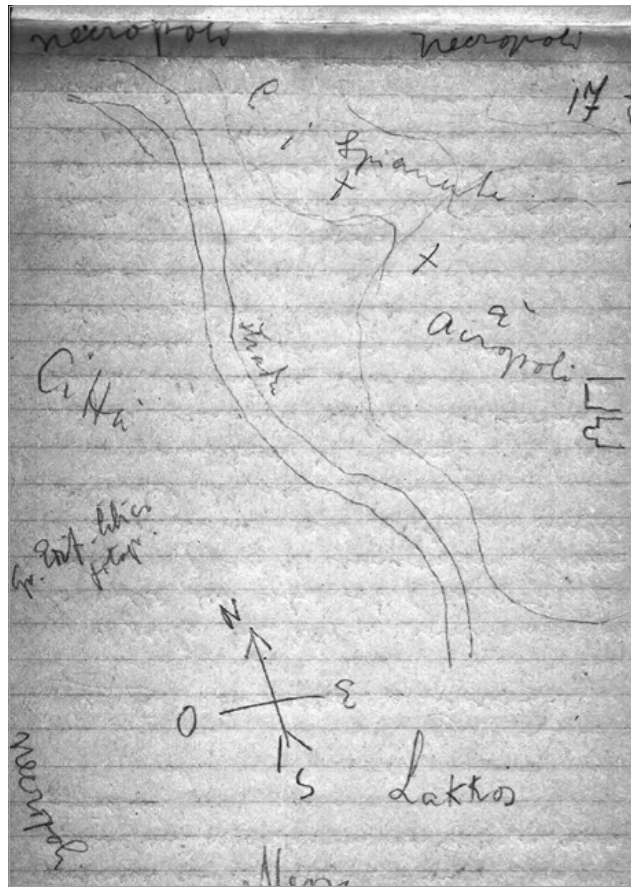 necropoli necropoli
17
Spianata
x
x
Acropoli
strada
Città
N
O E
S
Lakkos
necropoli